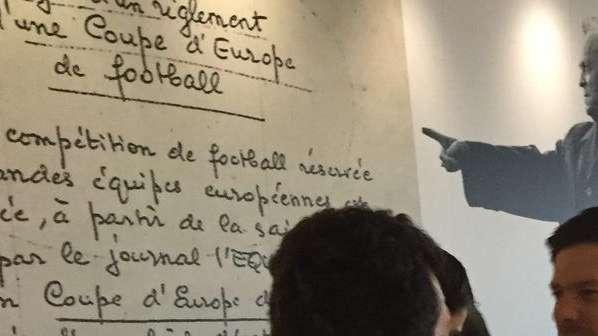 d'un règlement
d'une Coupe d'Europe
de football
compétition de football réservée
andes équipes européennes
ée, à partir de la sai
par le journal l'EQU
n Coupe d'Europe d